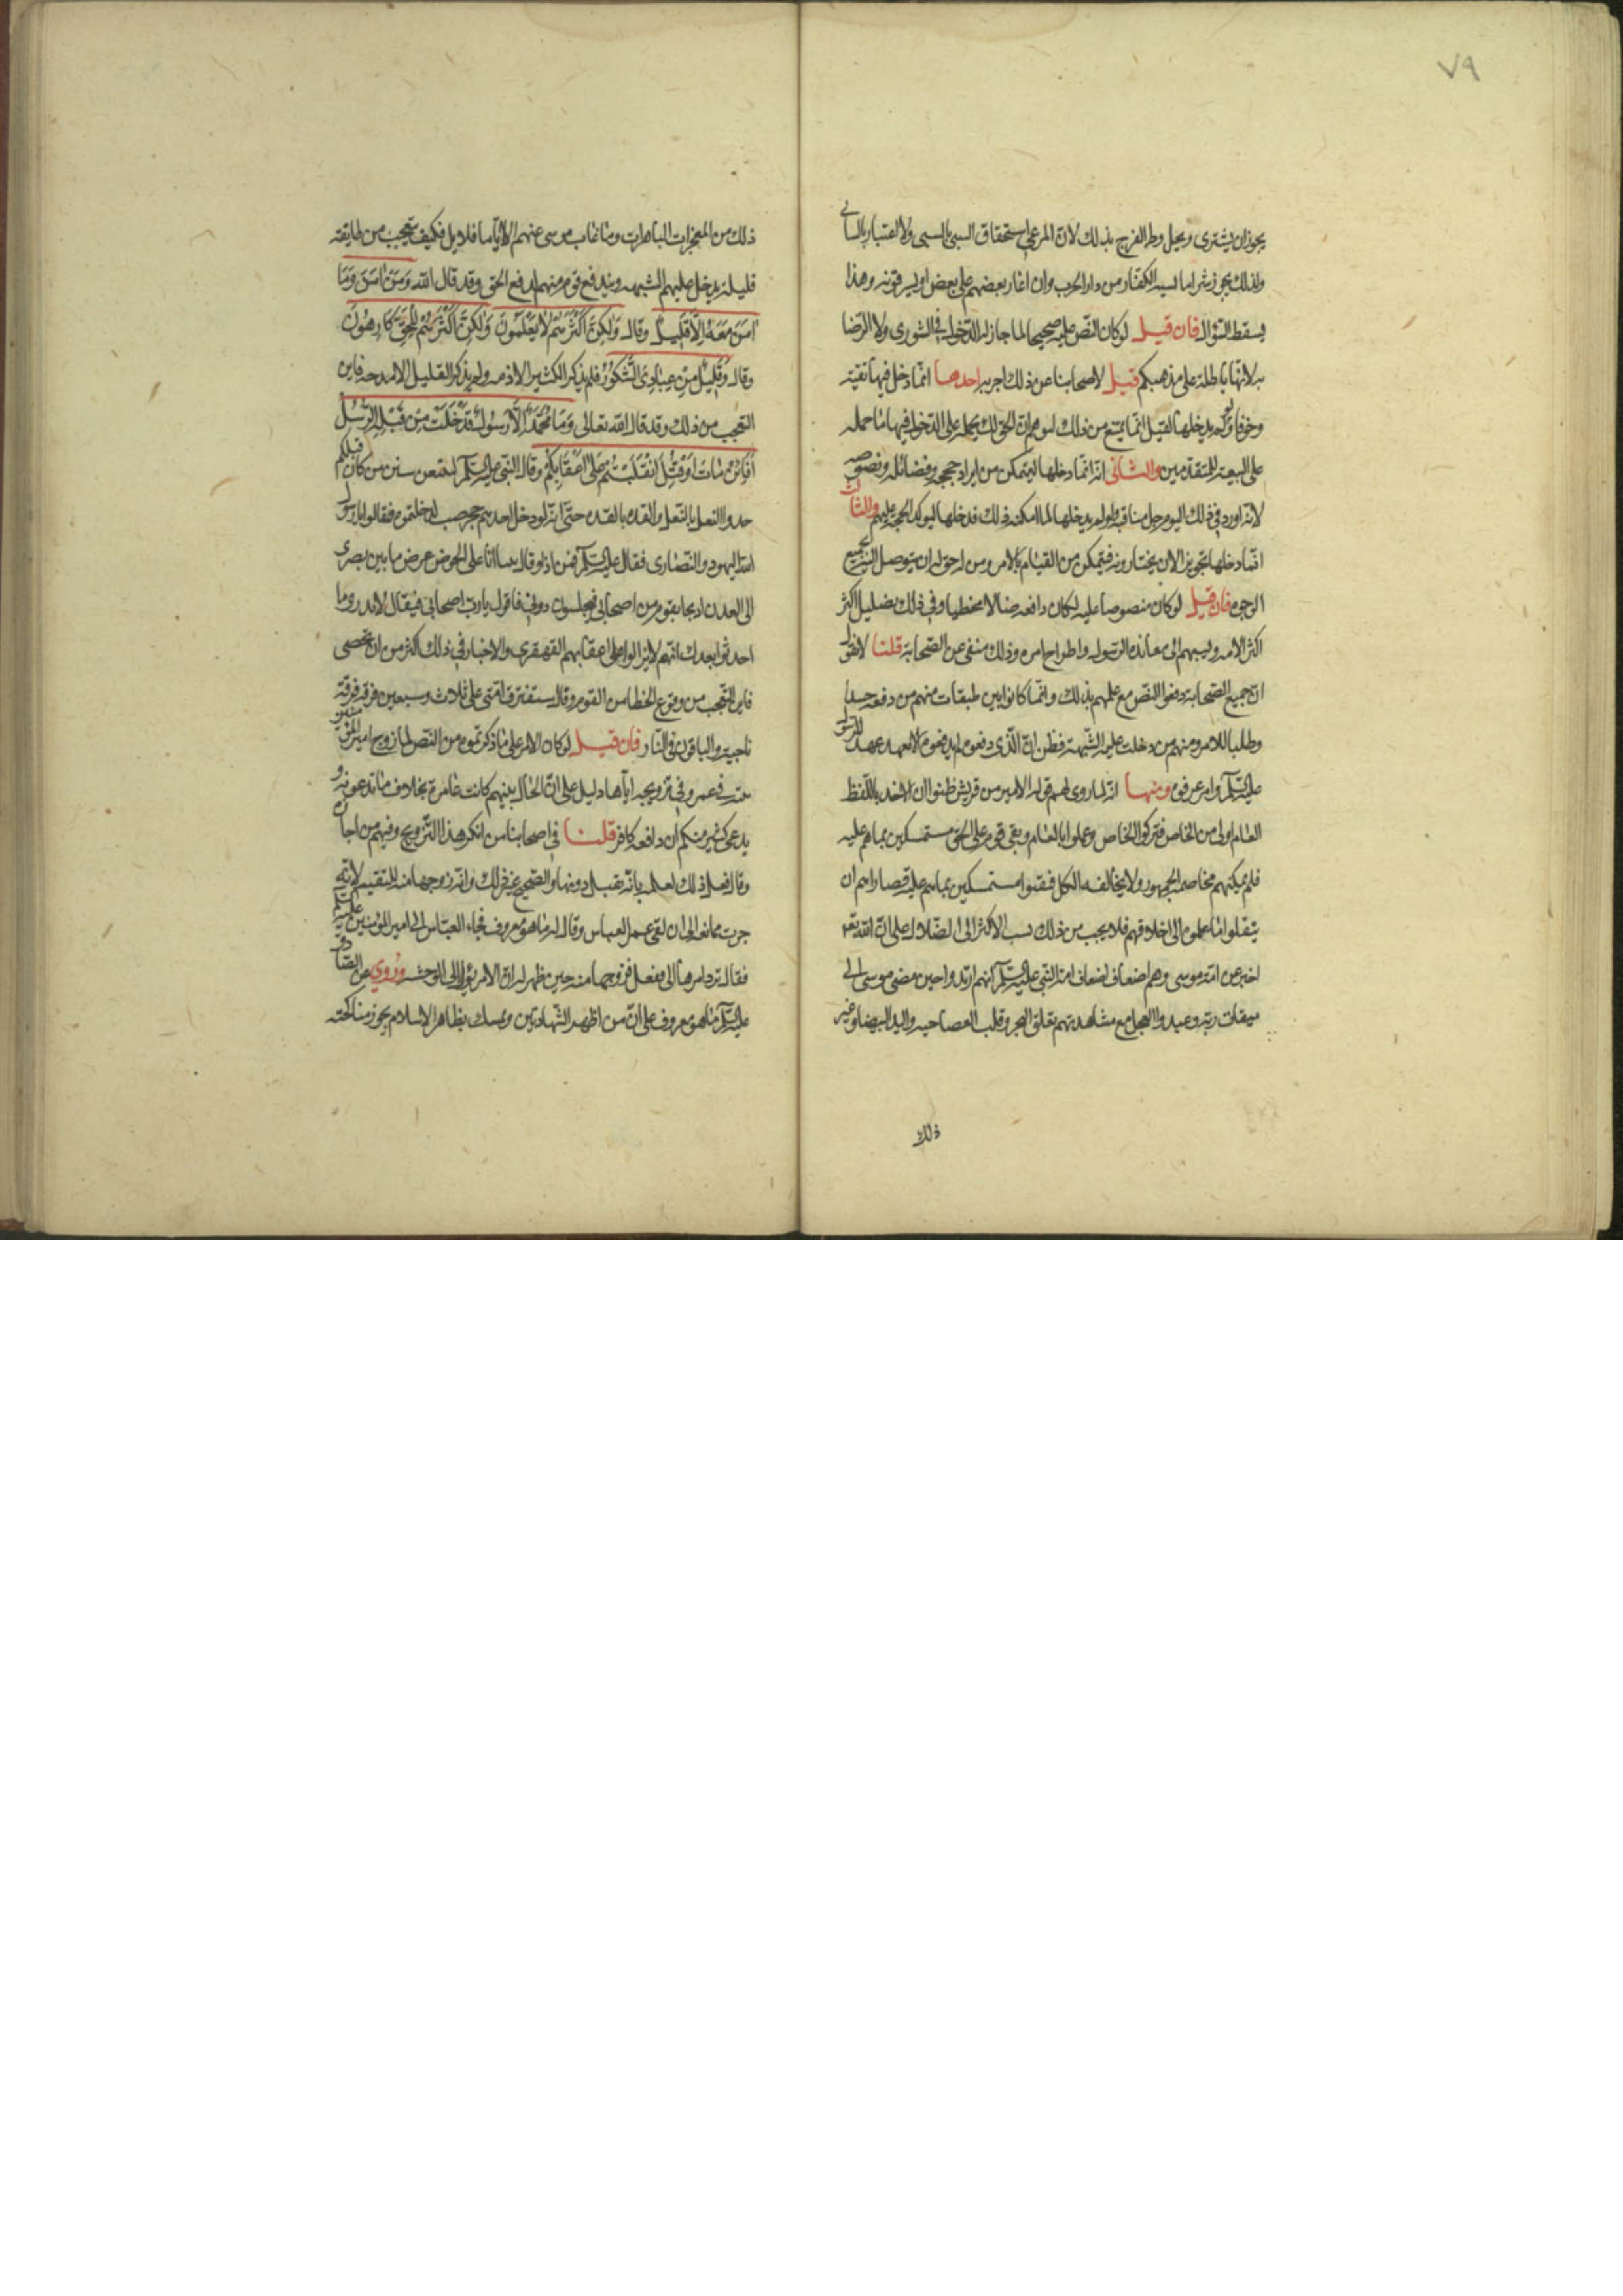 ٧٩
يجوز ان يشترى ويحل وطى الفرج بذلك لانّ المرعى استحقاق السبي بالسبى ولا اعتبار بالسابي
ولذلك يجوز شراء ما يسبيه الكفّار من دار الحرب وان اغار بعضهم على بعض او يسرقونه وهذا
يسقط السّؤال فان قيل لو كان النّص عليه صحيحا لما جاز له الدّخول في الشورى ولا الرّضا
به لانّها باطلة على مذهبكم قيل لاصحابنا عن ذلك اجوبه احدها انّما دخل فيها تقيّة
وخوفا ولو لم يدخلها لقيل انّما يمتنع من ذلك لتوهم انّ الحقّ لك يحمله على الدّخول فيها ما حمله
على البيعة للمتقدمين والثانى انّه انّما دخلها ليتمكن من ايراد حججه وفضائله ونصوصه
لانّه اورد في ذلك اليوم جل مناقبه ولو لم يدخلها لما امكنه ذلك فدخلها ليوكد الحجة عليهم والثالث
انّما دخلها تجويزا لان يختارونه فيتمكن من القيام بالامر ومن له حق له ان يتوصل اليه بجميع
الوجوه فان قيل لو كان منصوصا عليه لكان دافعه ضالا مخطيا وفي ذلك تضليل اكثر
اكثر الامه ونسبهم الى معانده الرّسول واطراح امره وذلك منفى عن الصّحابة قلنا لا نقول
انّ جميع الصّحابة دفعوا النّص مع علمهم بذلك وانّما كانوا بين طبقات منهم من دفعه حسدا
وطلبا للامر ومنهم من دخلت عليه الشّبهة فظن انّ الّذى دفعوه لم يدفعوه الا لعهد عهد الرّسول
عليه السّلم وامر عرفوه ومنها انّه لما روى لهم قوله الامير من قريش ظنوا ان الاخذ باللّفظ
العام اولى من الخاص فتركوا الخاص وعملوا بالعام وبقى قوم على الحق مستمسكين بما هم عليه
فلم يمكنهم مخاصمه الجمهور ولا مخالفه الكل فبقوا مستمسكين بما هم عليه قصاراهم ان
ينقلوا ما علموه الى اخلافهم فلا يجب من ذلك نسب الاكثر الى الضّلال على انّ الله تع
اخبر عن امّة موسى وهم اضعاف اضعاف امة النّبي عليه السّلم انهم ارتدوا حين مضى موسى الى
ميقات ربّه وعبدوا العجل مع مشاهدتهم تغلق البحر وقلب العصا حيه واليد البيضا وغير
ذلك
ذلك من المعجزات الباهرات وما غاب موسى عنهم الا اياما قلايل فكيف يتعجب من طايفة
قليلة يدخل عليهم الشبهه ويندفع قوم منهم لدفع الحق وقد قال الله وَمَنْ اٰمَنَ وَمَا
اٰمَنَ مَعَهُ اِلّا قَليل وقال وَلٰكِنّ اَكْثَرَهُمْ لا يَعْلَمُونَ وَلٰكِنّ اَكْثَرَهُمْ لِلْحَقّ كَارِهُونَ
وقال وَقَليلٌ مِنْ عِبَادِىَ الشَّكُورُ فلم يذكر الكثير الا ذمه ولم يذكر القليل الا مدحه فاين
التعجب من ذلك وقد قال الله تعالى وَمَا مُحَمّدٌ اِلّا رَسُولٌ قَدْ خَلَتْ مِنْ قَبْلِهِ الرُّسُلُ
اَفَاِنْ مَاتَ اَوْ قُتِلَ انْقَلَبْتُمْ عَلى اَعْقَابِكُمْ وقال النّبي عليه السّلم لتتبعن سنن من كان قبلكم
حذوا النعل بالنّعل والقذه بالقذه حتّى انّه لو دخل احدهم جحر ضب لدخلتموه فقالوا يا رسول
الله اليهود والنّصارى فقال عليه السّلم فمن اذا وقال بينا انا على الحوض عرض ما بين بصرى
الى العدن اذ يجا بقوم من اصحابي فيجلسون دونى فاقول يا رب اصحابى فيقال لا تدرى ما
احدثوا بعدك انّهم لا يزالوا على اعقابهم القهقرى والاخبار في ذلك اكثر من ان تحصى
فاين التعجب من وقوع الخطا من القوم وقال ستفترق امّتى على ثلاث وسبعين فرقه فرقة منها
ناجية والباقون فى النار فان قيل لو كان الامر على ما ذكرتموه من النّص لما زوج امير المؤمنين
بنته من عمر وفي تزويجه اياها دليل على انّ الحال بينهم كانت عامرة بخلاف ما تدعونه و
يدعى كثير منكم ان دافعه كافر قلنا في اصحابنا من انكر هذا التّزويج وفيهم من اجازه
وقال فعل ذلك لعلمه بانّه يقتل دونها والصّحيح غير ذلك وانّه زوجها منه للتقيّه لانّه
جرت ممانعه الى ان لقى عمر العباس وقال له ما هو معروف فجاء العبّاس الى امير المؤمنين عليه السّلم
فقال ترد امرها الى ففعل فزوجها منه حين ظهر له انّ الامر يؤل الى الوحشه وروي عن الصّادق
عليه السّلم ما هو معروف على انّ من اظهر الشّهادتين وتمسك بظاهر الاسلام يجوز مناكحته